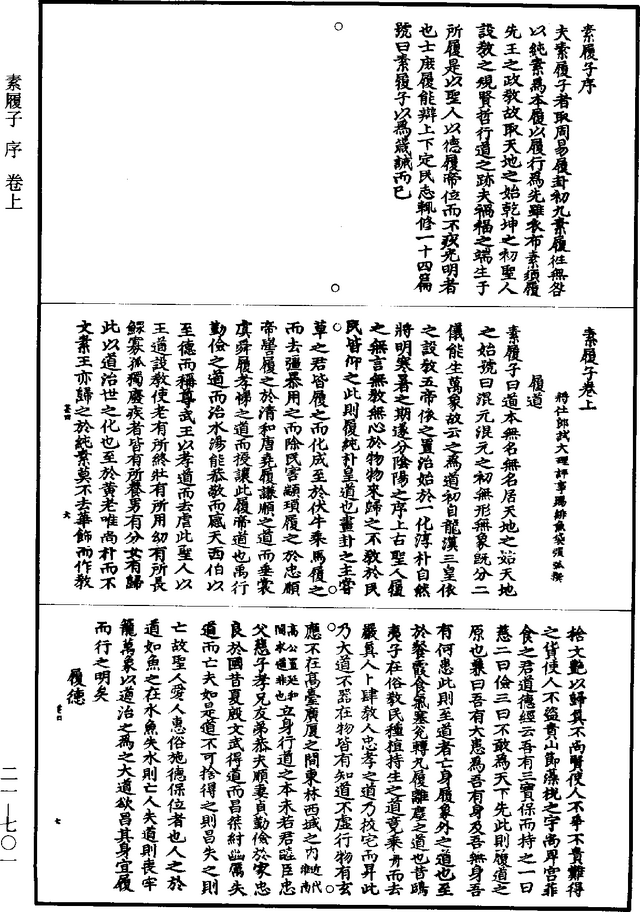 素履子序
夫素履子者取周易履卦初九素履往無咎
以純素爲本履以履行爲先雖衣布素須履
先王之政教故取天地之始乾坤之初聖人
設教之規賢哲行道之跡夫禍福之端生于
所履是以聖人以德履帝位而不疚光明者
也士庶履能辯上下定民志輒修一十四篇
號曰素履子以爲箴誡而已
素履子卷上
將仕郎試大理評事賜緋魚袋張弧撰
履道
素履子曰道本無名無名居天地之始天地
之始號曰混元混元之初無形無象既分二
儀能生萬象故云之爲道初自龍漢三皇依
之設教五帝依之置治始於一化淳朴自然
將明寒暑之期遂分陰陽之序上古聖人履
之無言無教無心於物物來歸之不教於民
民皆仰之此則履純朴皇道也畫卦之主嘗
草之君皆履之而化成至於伏牛乘馬履之
而去彊暴用之而除民害顓頊履之於忠順
帝嚳履之於清和唐堯履謙順之道而垂裳
虞舜履孝悌之道而授讓此履帝道也禹行
勤儉之道而治水湯能恭敬而感天西伯以
至德而稱尊武王以孝道而去虐此聖人以
王道設教使老有所終壯有所用幼有所長
鰥寡孤獨廢疾者皆有所養男有分女有歸
此以道治世之化也至於黄老唯尚朴而不
文素王亦歸之於純素莫不去華飾而作教
素四 六
捨文艷以歸真不尚賢使人不爭不貴難得
之貨使人不盜賁山節藻梲之字高卑宮菲
食之君道德經云吾有三寶保而持之一曰
慈二曰儉三曰不敢爲天下先此則履道之
原也集曰吾有大患爲吾有身及吾無身吾
有何患此則至道者亡身履象外之道也至
於餐霞食氣塞兌轉九履離塵之道也昔鴟
夷子在俗教民種植持生之道竟乘舟而去
嚴真人卜肆教人忠孝之道乃拔宅而昇此
乃大道不器在物皆有知道不虛行物有玄
應不在高臺廣厦之間東林西域之内近代維尚
高公置延和閣求道非也立身行道之本未若君臨臣忠
父慈子孝兄友弟恭夫順妻貞勤儉於家忠
良於國昔夏殷文武得道而昌桀紂幽厲失
道而亡夫如是道不可捨得之則昌失之則
亡故聖人愛人惠俗施德保位者也人之於
道如魚之在水魚失水則亡人失道則喪牢
籠萬象以道治之爲之大道欲昌其身宜履
而行之明矣
履德
素四 七
素履子 序 卷上
二一—七〇一